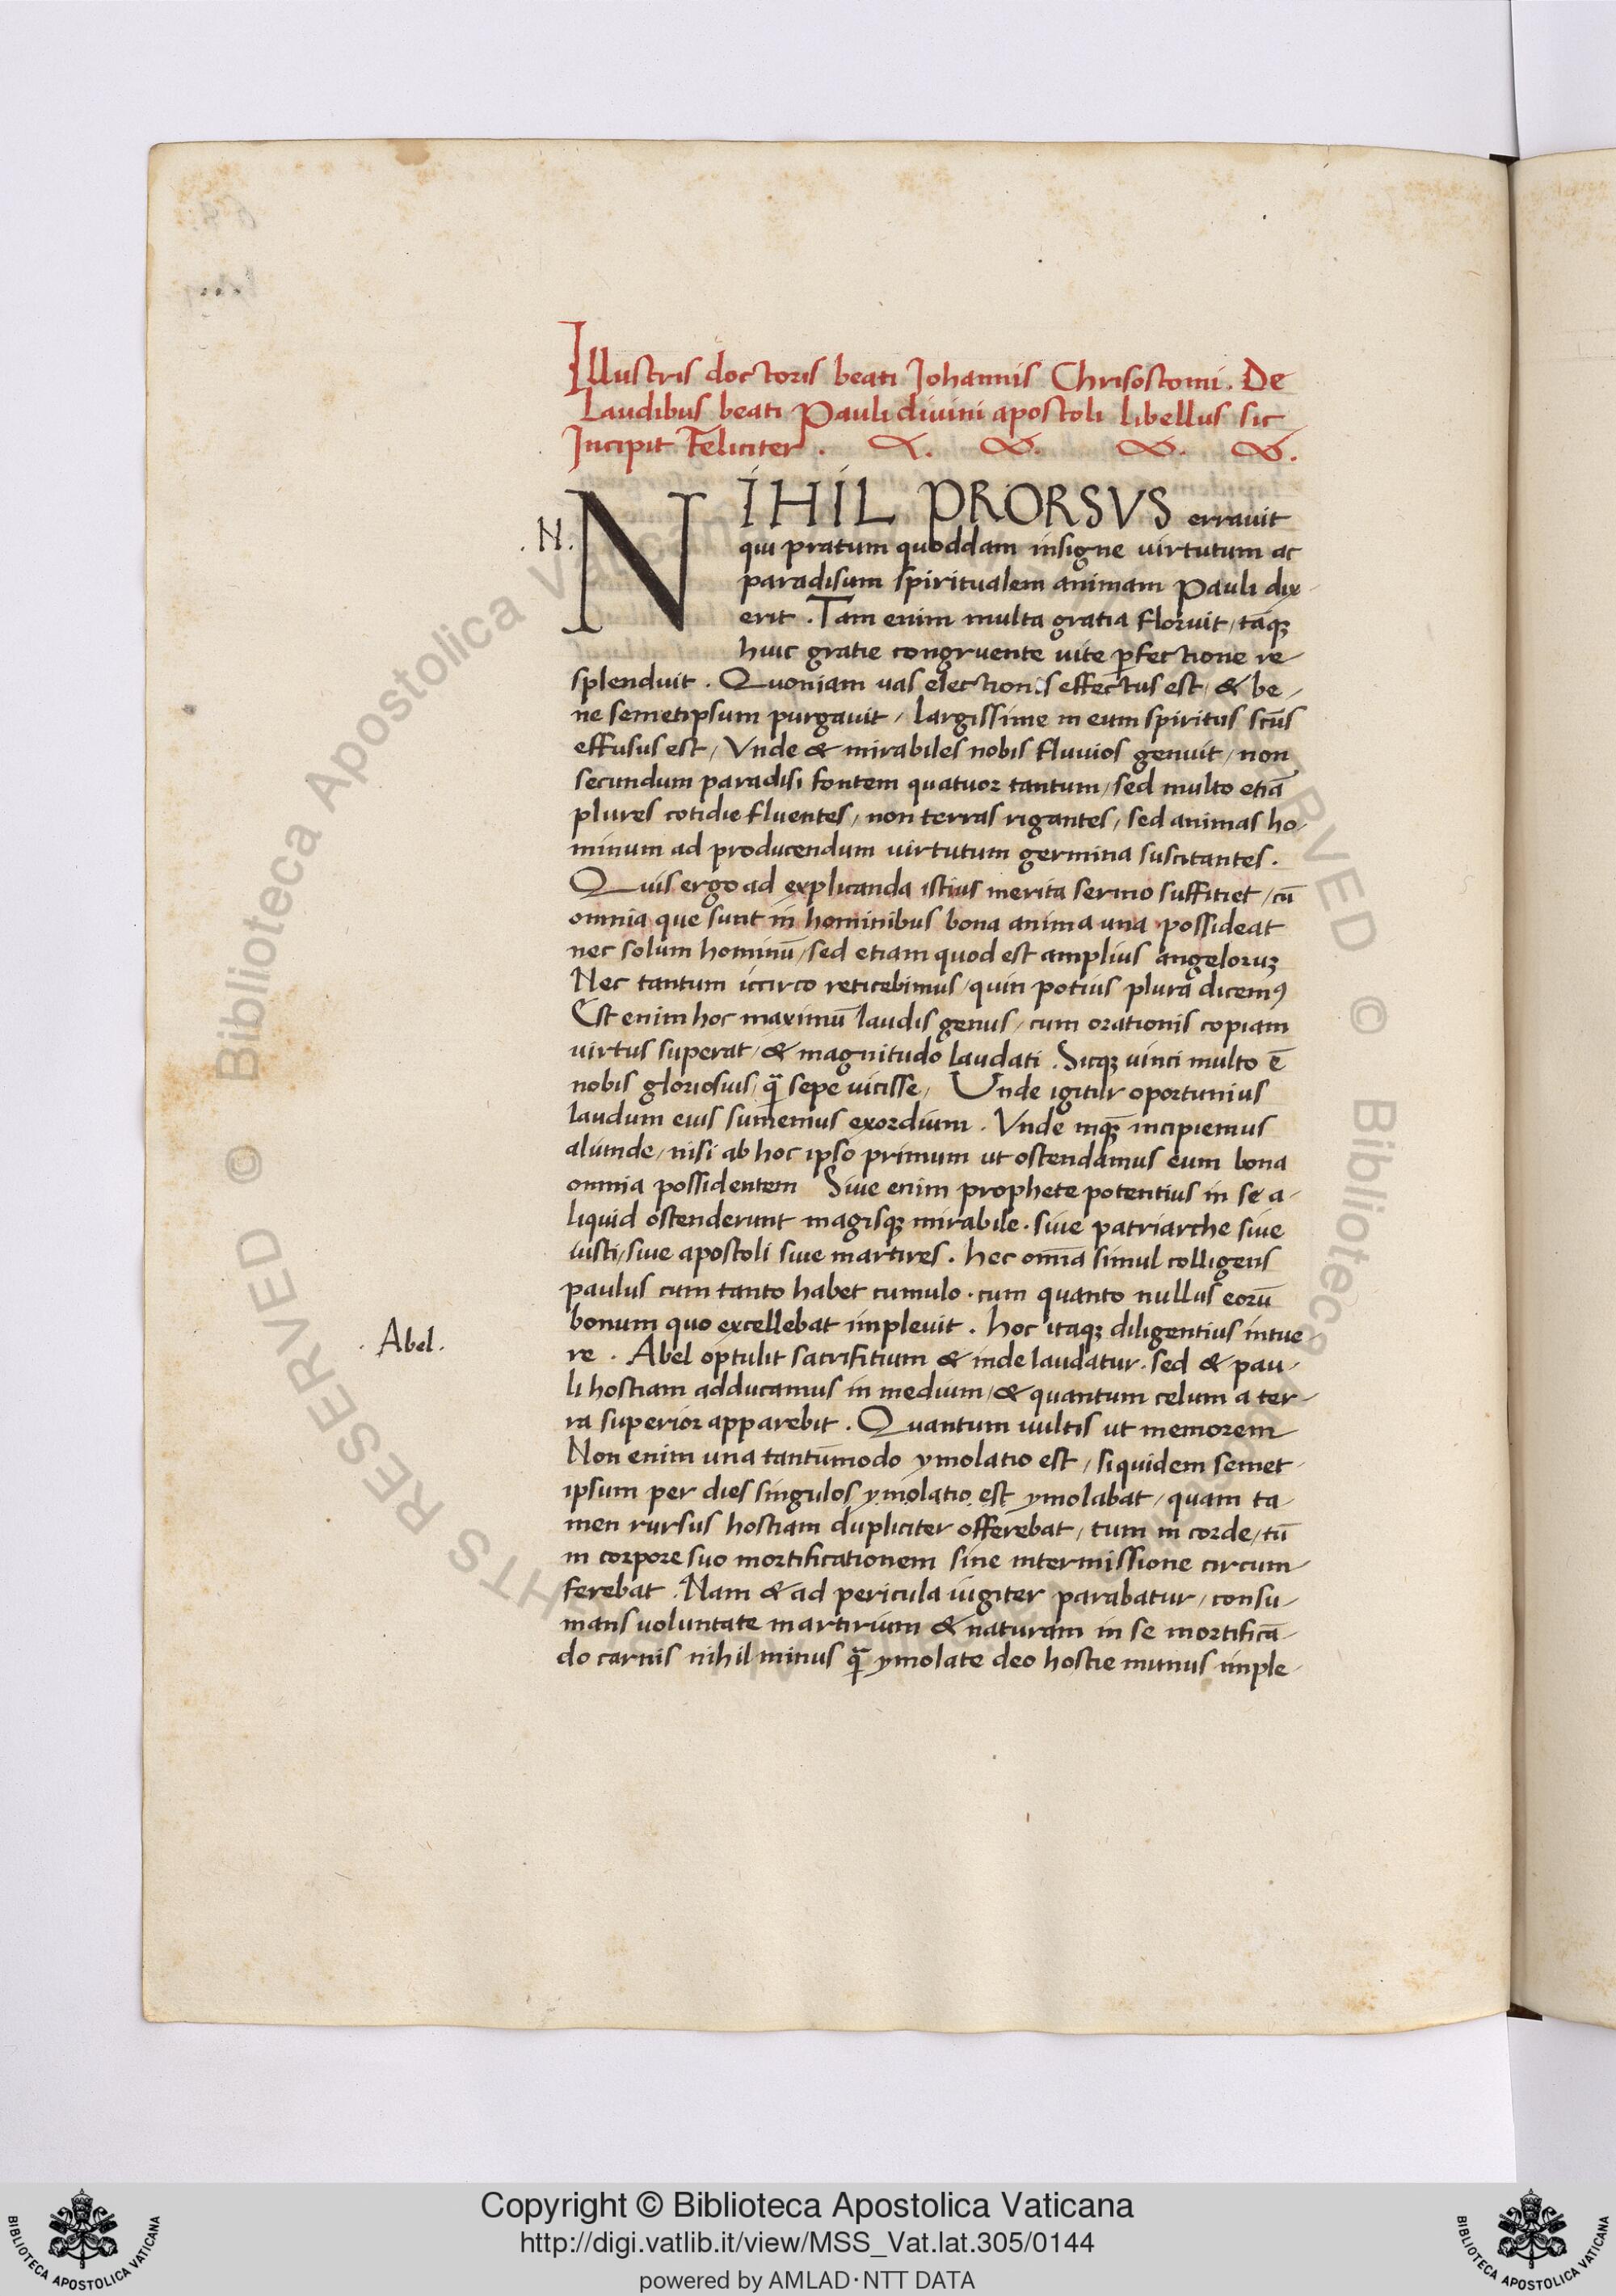 Illustris doctoris beati Johannis Chrisostomi. De
Laudibus beati Pauli divini apostoli libellus sic
Incipit Feliciter.
.N.
NIHIL PRORSVS erravit
qui pratum quoddam insigne virtutum ac
paradisum spiritualem animam Pauli dix-
erit. Tam enim multa gratia floruit/ tāqꝫ
huic gratie congruente vite ꝑfectione re-
splenduit. Quoniam vas electionis effectus est/ & be-
ne semetipsum purgavit/ largissime in eum spiritus sc̄us
effusus est/ Vnde & mirabiles nobis fluvios genuit/ non
secundum paradisi fontem quatuor tantum/ sed multo etiā
plures cotidie fluentes/ non terras rigantes/ sed animas ho-
minum ad producendum virtutum germina suscitantes.
Quis ergo ad explicanda istius merita sermo suffitiet/ cū
omnia que sunt in hominibus bona anima una possideat
nec solum hominū/ sed etiam quod est amplius angeloruꝫ
Nec tantum iccirco reticebimus/ quin potius plura dicemꝰ
Est enim hoc maximū laudis genus/ cum orationis copiam
virtus superat/ & magnitudo laudati. Sicqꝫ vinci multo ē
nobis gloriosius/ qᷓ sepe vicisse/ Unde igitur oportunius
laudum eius sumemus exordium. Vnde inqꝫ incipiemus
aliunde/ nisi ab hoc ipso primum ut ostendamus eum bona
omnia possidentem Sive enim prophete potentius in se a-
liquid ostenderunt magisqꝫ mirabile. sive patriarche sive
iusti/ sive apostoli sive martires. hec om̄ia simul colligens
paulus cum tanto habet cumulo. cum quanto nullus eorū
bonum quo excellebat implevit. hoc itaqꝫ diligentius intue
Abel.
re. Abel optulit sacrifitium & inde laudatur. sed & pau-
li hostiam adducamus in medium/ & quantum celum a ter-
ra superior apparebit. Quantum vultis ut memorem
Non enim una tantūmodo ymolatio est/ siquidem semet-
ipsum per dies singulos ymolatio est ymolabat/ quam ta-
men rursus hostiam dupliciter offerebat/ tum in corde/ tū
in corpore suo mortificationem sine intermissione circum-
ferebat. Nam & ad pericula iugiter parabatur/ consu-
mans voluntate martirium & naturam in se mortificā-
do carnis nihil minus qᷓ ymolate deo hostie munus imple-
© Biblioteca Apostolica Vaticana
Copyright © Biblioteca Apostolica Vaticana
http://digi.vatlib.it/view/MSS_Vat.lat.305/0144
powered by AMLAD·NTT DATA
BIBLIOTECA APOSTOLICA VATICANA
BIBLIOTECA APOSTOLICA VATICANA